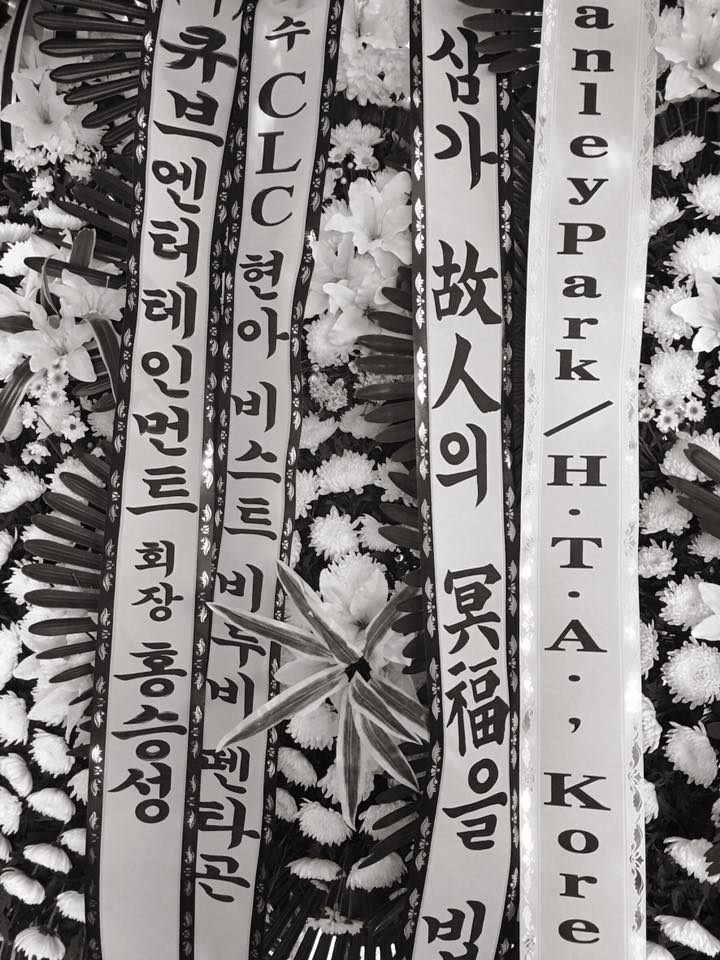 큐브엔터테인먼트 회장 홍승성
수 CLC 현아 비스트 비투비 펜타곤
삼가 故人의 冥福을 빕
anleyPark/H.T.A., Kore